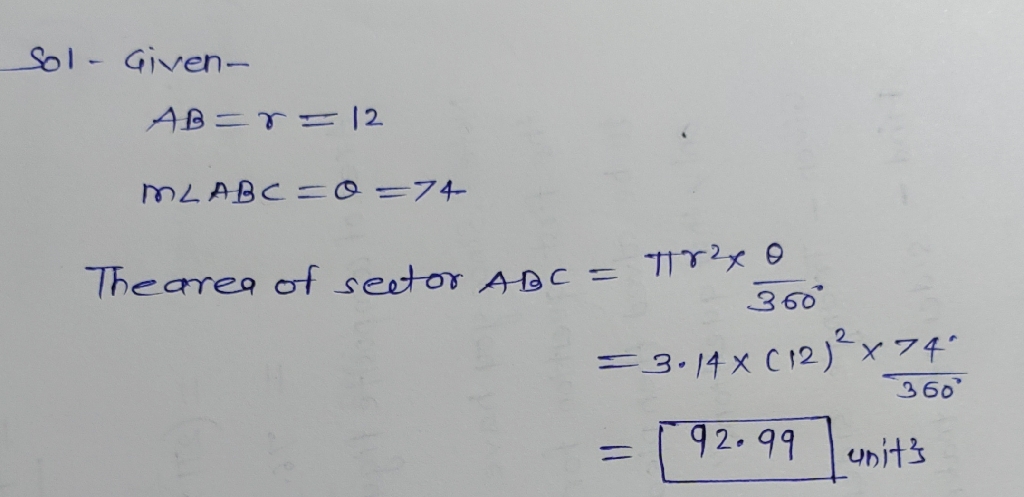 Sol - Given -
AB = r = 12
m∠ABC = θ = 74
The area of sector ABC = πr² × θ/360°
= 3.14 × (12)² × 74°/360°
= 92.99 unit²s